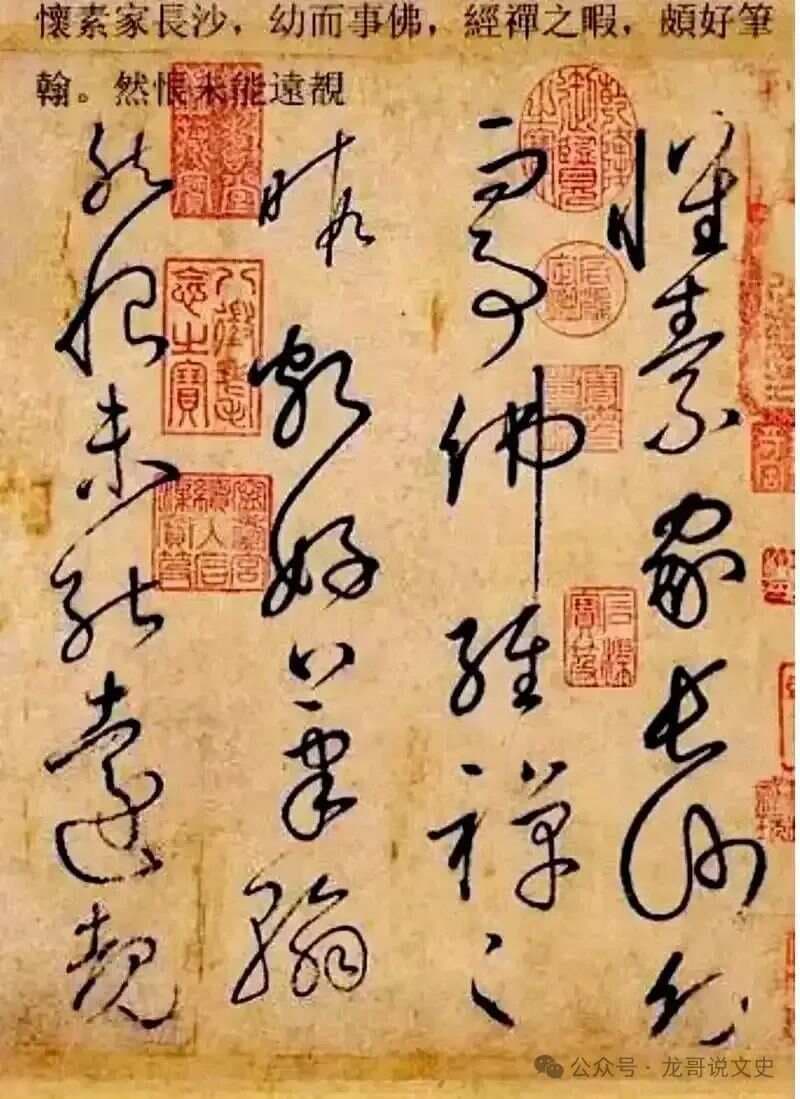 懷素家長沙，幼而事佛，經禪之暇，頗好筆
翰。然恨未能遠覩
懷素家長沙幼
而事佛經禪之
暇頗好筆翰
然恨未能遠覩
八徵耄念之寶
公众号·龙哥说文史